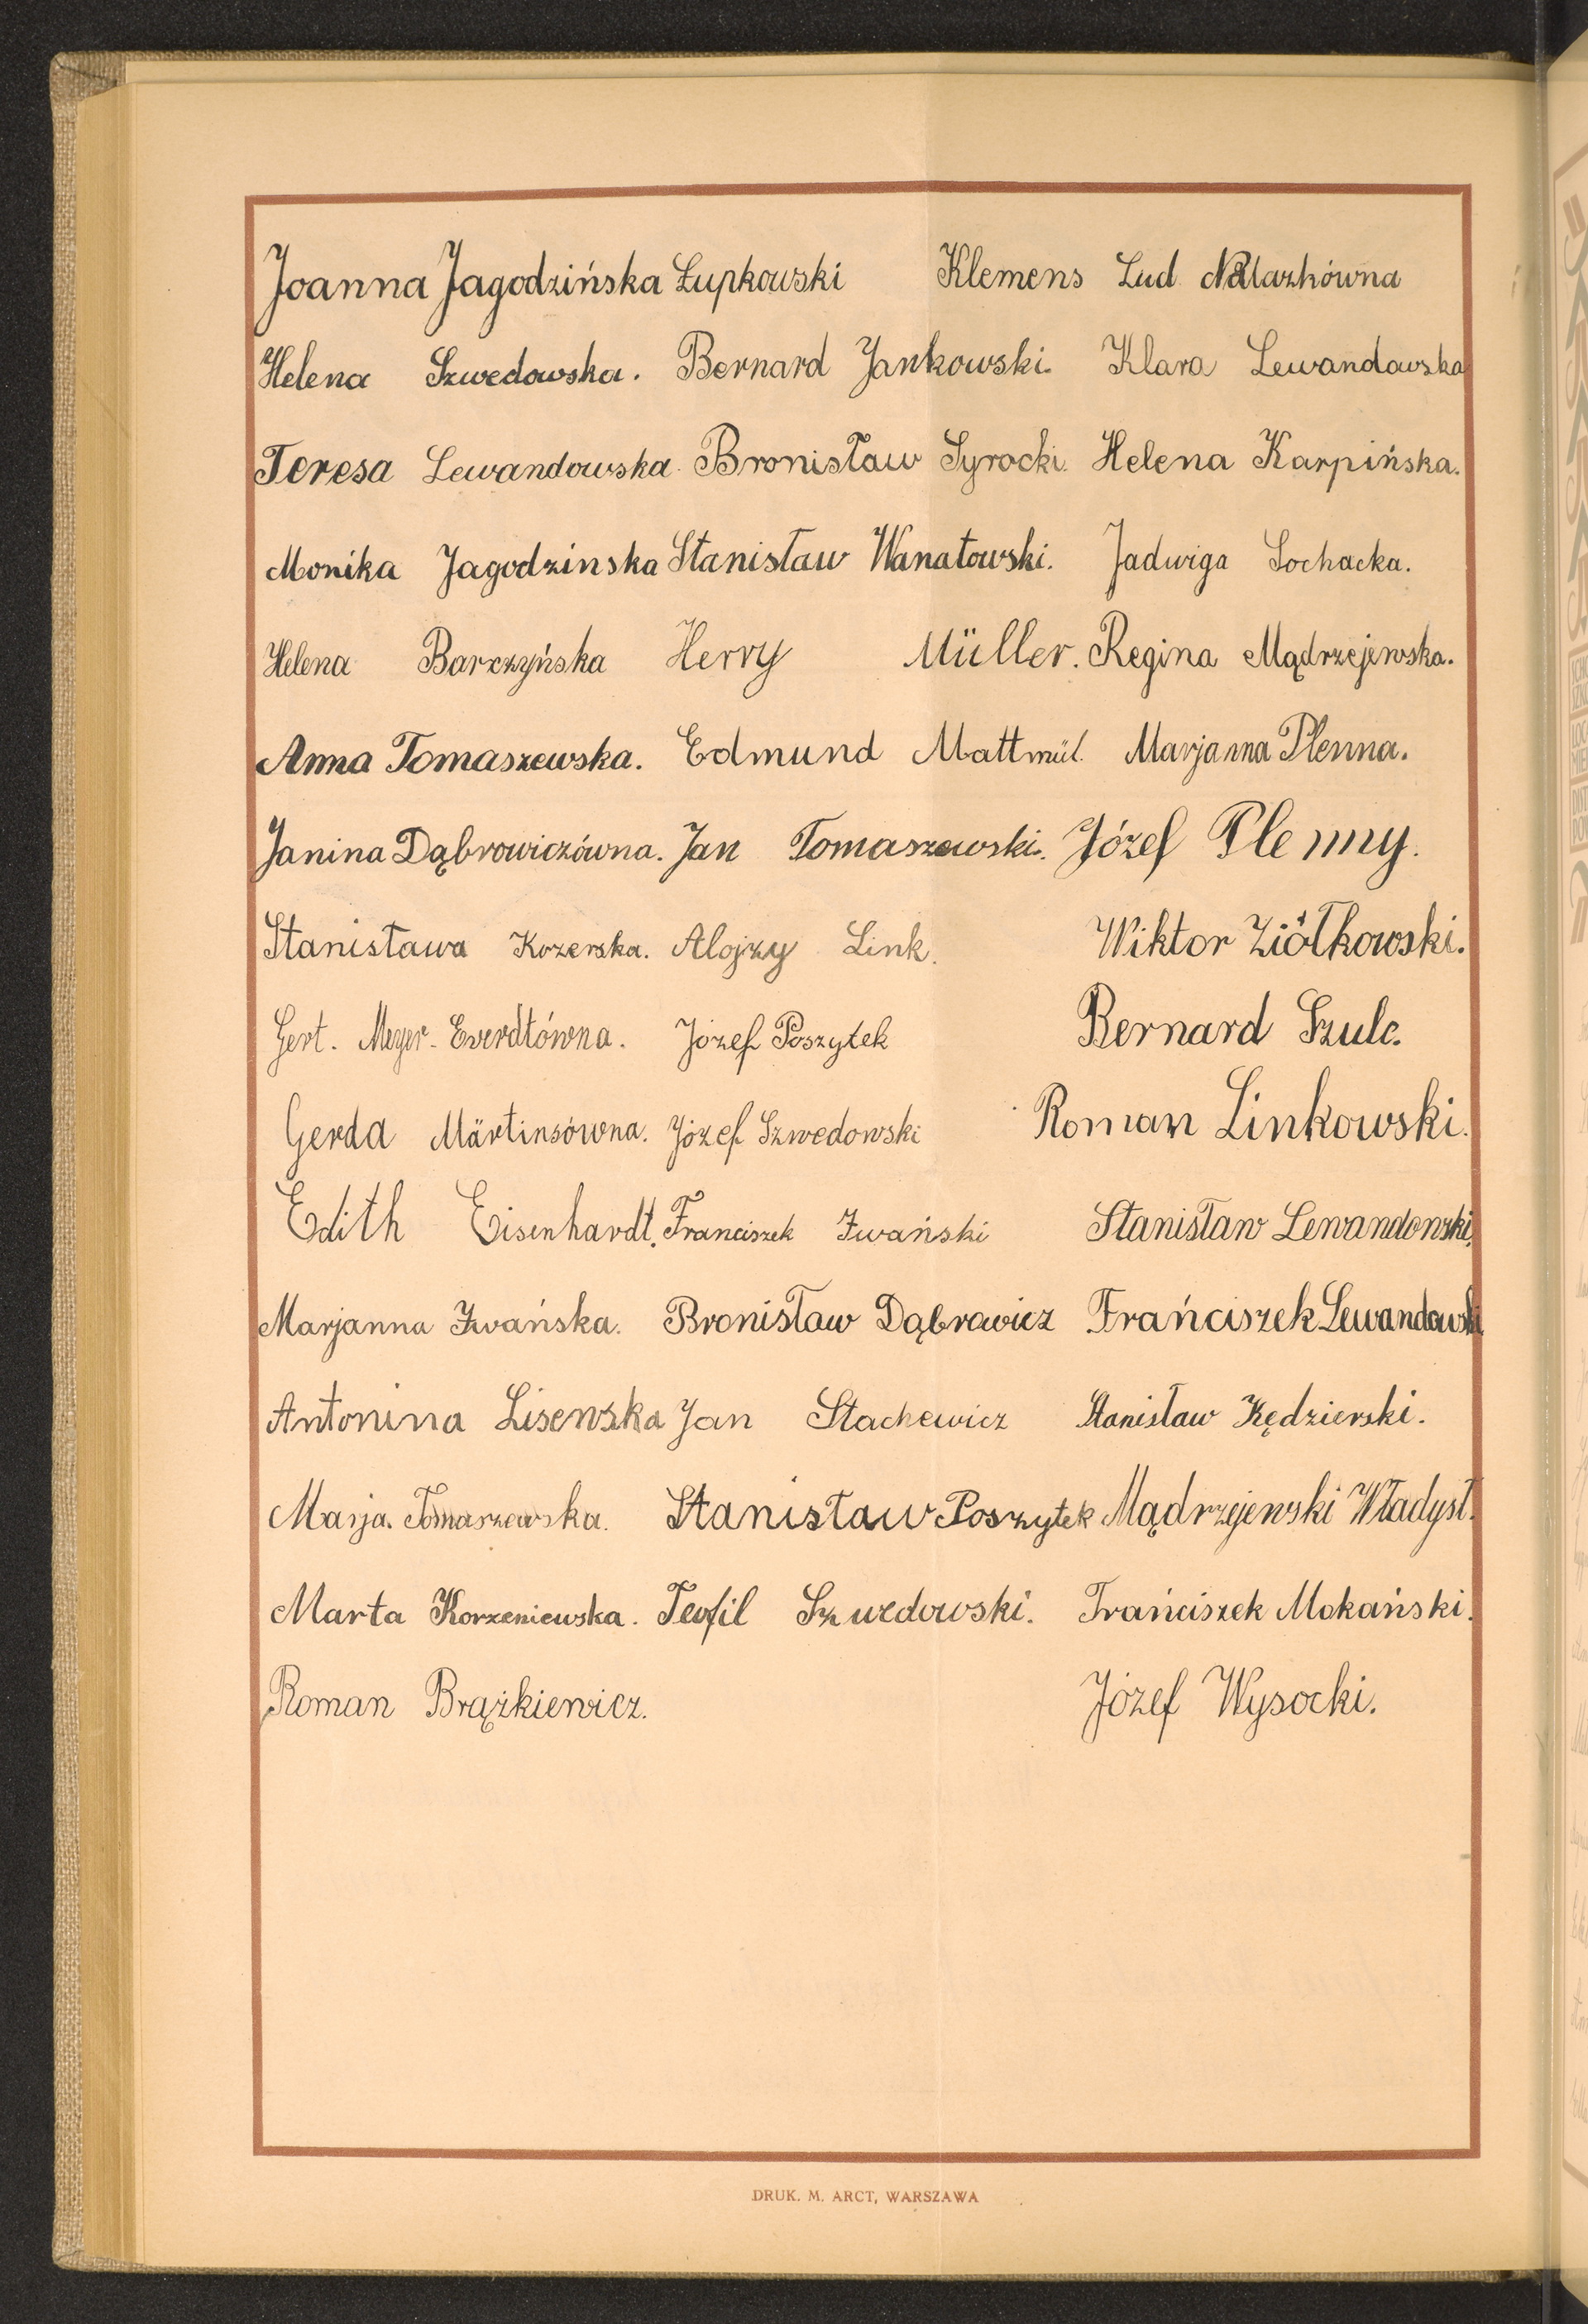 Joanna Jagodzińska Łupkowski Klemens Lud
Helena Szwedowska. Bernard Jankowski. Klara Lewandowska
Teresa Lewandowska. Bronisław Syrocki. Helena Karpińska.
Monika Jagodzinska Stanisław Wanatowski. Jadwiga Sochacka.
Helena Barczyńska Herry Müller. Regina Mądrzejewska.
Anna Tomaszewska. Edmund Mattmül. Marjanna Plenna.
Janina Dąbrowiczówna. Jan Tomaszewski. Józef Plenny.
Stanisława Kozerska. Alojzy Link. Wiktor Ziółkowski.
Gert. Meyer-Everdtówna. Józef Poszytek Bernard Szulc.
Gerda Märtinsówna. Józef Szwedowski Roman Linkowski.
Edith Eisenhardt. Franciszek Iwański Stanisław Lewandowski.
Marjanna Iwańska. Bronisław Dąbrowicz Frańciszek Lewandowski
Antonina Lisewska Jan Stachewicz Stanisław Kędzierski.
Marja. Tomaszewska. Stanisław Poszytek Mądrzejewski Władysł.
Marta Korzeniewska. Teofil Szwedowski. Frańciszek Mokański.
Roman Brążkiewicz. Józef Wysocki.
DRUK. M. ARCT, WARSZAWA